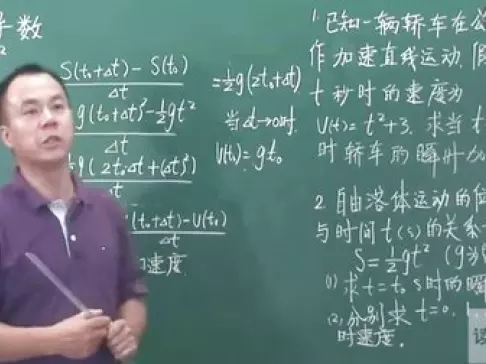 导数
S(t₀+Δt) − S(t₀)
Δt
g(t₀+Δt)²−½gt²
Δt
=½g(2t₀+Δt)
½g(2t₀Δt+(Δt)²)
Δt
当Δt→0时,
V(t₀)=gt₀
(t₀+Δt)−V(t₀)
Δt
速度
1. 已知一辆轿车在公
作加速直线运动,
t秒时的速度为
V(t)=t²+3, 求当t
时轿车的瞬时加
2. 自由落体运动的位
与时间t(s)的关系
S=½gt² (g为
(1) 求t=t₀ s时的瞬
(2) 分别求t=0,1
时速度.